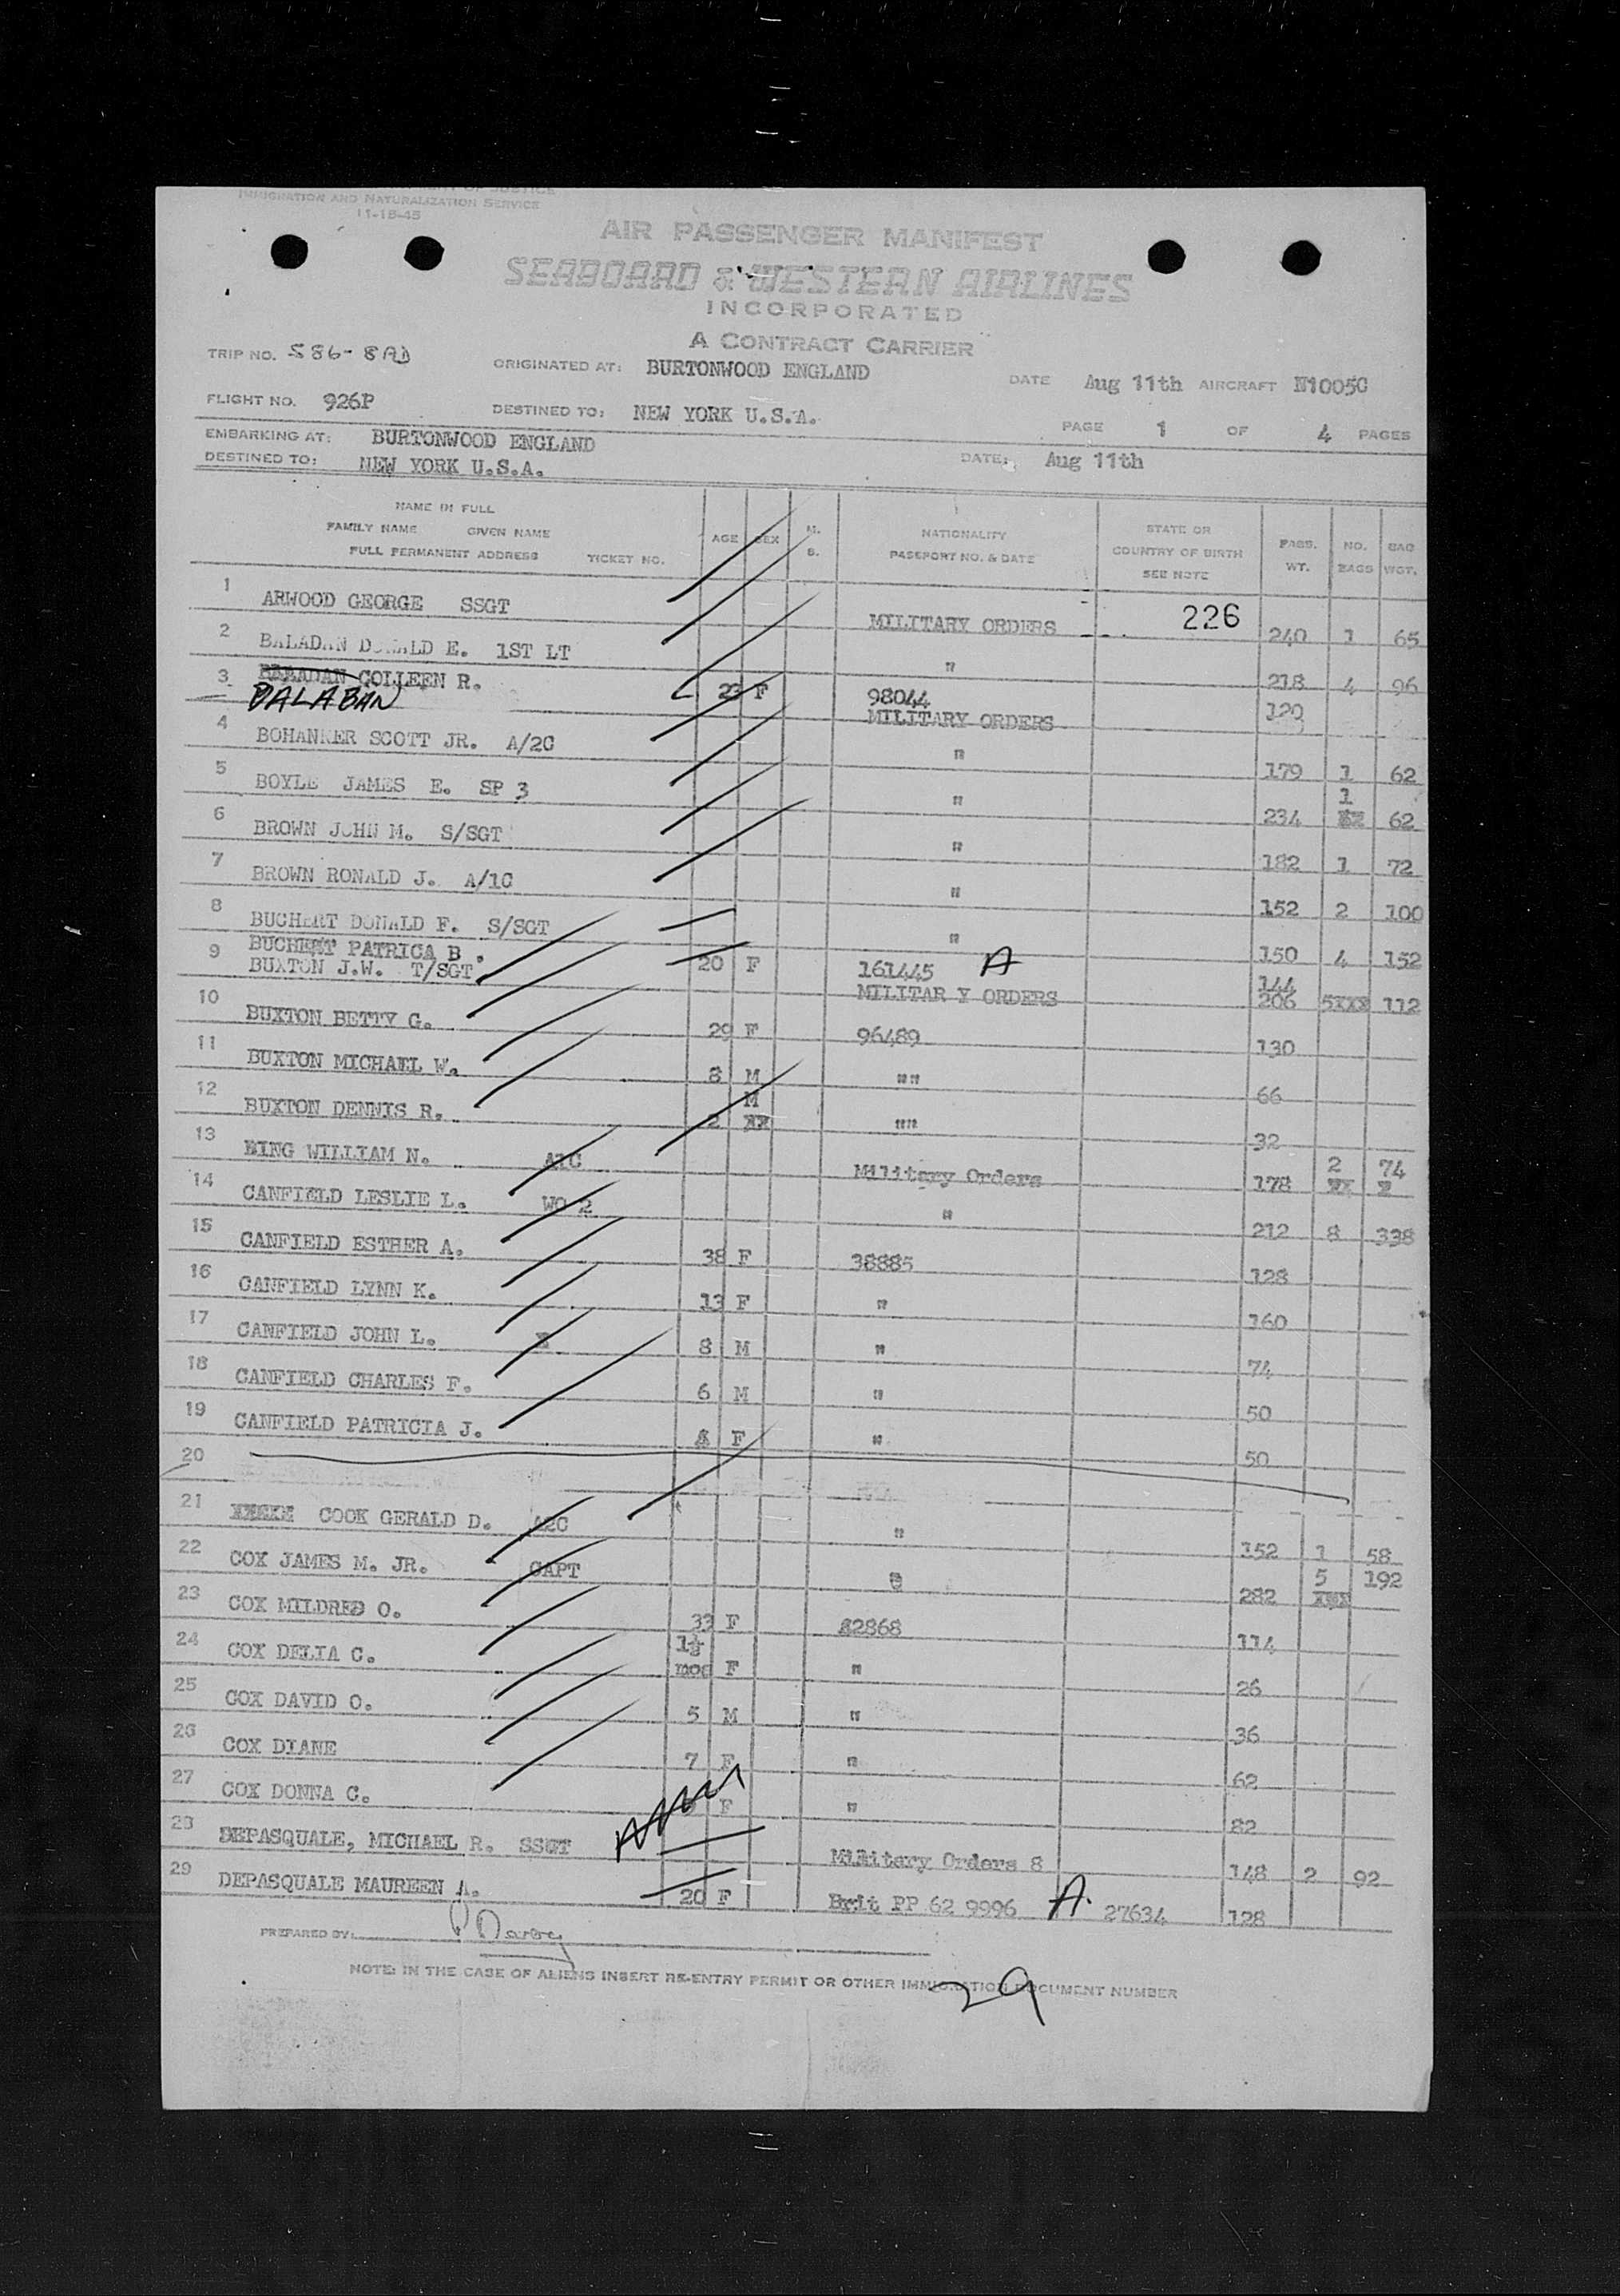 IMMIGRATION AND NATURALIZATION SERVICE
11-15-45
AIR PASSENGER MANIFEST
SEABOARD & WESTERN AIRLINES
INCORPORATED
A CONTRACT CARRIER
TRIP NO. S86-8AD ORIGINATED AT: BURTONWOOD ENGLAND DATE Aug 11th AIRCRAFT N1005C
FLIGHT NO. 926P DESTINED TO: NEW YORK U.S.A. PAGE 1 OF 4 PAGES
EMBARKING AT: BURTONWOOD ENGLAND
DESTINED TO: NEW YORK U.S.A. DATE: Aug 11th
NAME IN FULL
FAMILY NAME GIVEN NAME
FULL PERMANENT ADDRESS TICKET NO. AGE SEX M. S. NATIONALITY PASSPORT NO. & DATE STATE OR COUNTRY OF BIRTH SEE NOTE PASS. WT. NO. BAGS BAG WGT.
1 ARWOOD GEORGE SSGT MILITARY ORDERS 226 240 1 65
2 BALADAN DONALD E. 1ST LT " 218 4 96
3 BALADAN COLLEEN R. 23 F 98044 120
BALABAN MILITARY ORDERS
4 BOHANKER SCOTT JR. A/2C " 179 1 62
5 BOYLE JAMES E. SP 3 " 234 1 62
6 BROWN JOHN M. S/SGT " 182 1 72
7 BROWN RONALD J. A/1C " 152 2 100
8 BUCHERT DONALD F. S/SGT " 150 4 152
BUCHERT PATRICA B. 20 F 161445 A 144
9 BUXTON J.W. T/SGT MILITAR Y ORDERS 206 5xxx 112
10 BUXTON BETTY G. 29 F 96489 130
11 BUXTON MICHAEL W. 8 M "" 66
12 BUXTON DENNIS R. 2 M "" 32
13 BING WILLIAM N. A1C Military Orders 178 2 74
14 CANFIELD LESLIE L. WO 2 " 212 8 338
15 CANFIELD ESTHER A. 38 F 38885 128
16 CANFIELD LYNN K. 13 F " 160
17 CANFIELD JOHN L. 8 M " 74
18 CANFIELD CHARLES F. 6 M " 50
19 CANFIELD PATRICIA J. F " 50
20
21 COOK GERALD D. A2C " 152 1 58
22 COX JAMES M. JR. CAPT " 282 5 192
23 COX MILDRED O. 33 F 82868 114
24 COX DELIA C. 1½ mos F " 26
25 COX DAVID O. 5 M " 36
26 COX DIANE 7 F " 62
27 COX DONNA C. F " 82
28 DEPASQUALE, MICHAEL R. SSGT Military Orders 8 148 2 92
29 DEPASQUALE MAUREEN A. 20 F Brit PP 62 9996 A. 27634 128
PREPARED BY:
NOTE: IN THE CASE OF ALIENS INSERT RE-ENTRY PERMIT OR OTHER IMMIGRATION DOCUMENT NUMBER
29